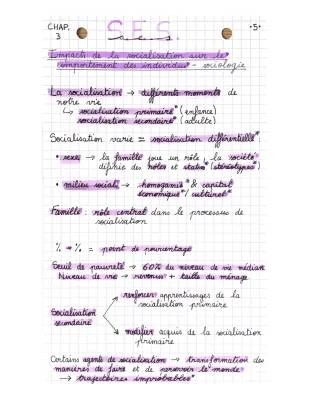 CHAP. 3
S.E.S.
•5•
Impacts de la socialisation sur le
comportement des individus - sociologie
La socialisation → différents moments de
notre vie
↳ socialisation primaire* (enfance)
socialisation secondaire* (adulte)
Socialisation varie = socialisation différentielle*
• sexe → la famille joue un rôle → la société
définie des rôles et statuts* (stéréotypes*)
• milieu social → homogamie* & capital
économique* / culturel*
Famille rôle central dans le processus de
socialisation
% → % = point de pourcentage
Seuil de pauvreté → 60% du niveau de vie médian
Niveau de vie → revenus + taille du ménage
Socialisation
secondaire
renforcer apprentissages de la
socialisation primaire
modifier acquis de la socialisation
primaire
Certains agents de socialisation → transformation des
manières de faire et de percevoir le monde
→ trajectoires improbables*